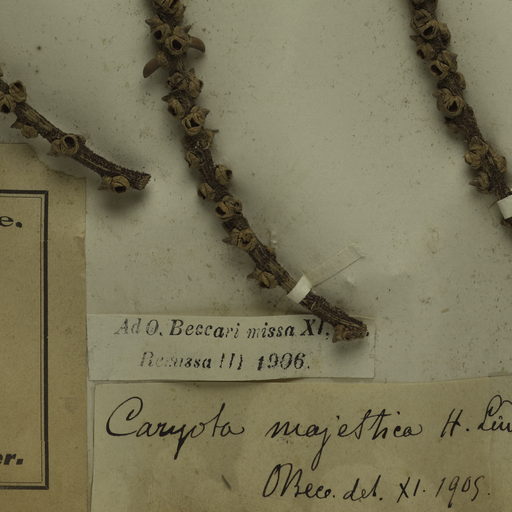 e.
Ad O. Beccari missa XI.
Remissa III 1906.
Caryota majestica H. Lin
OBecc. det. XI. 1905.
er.